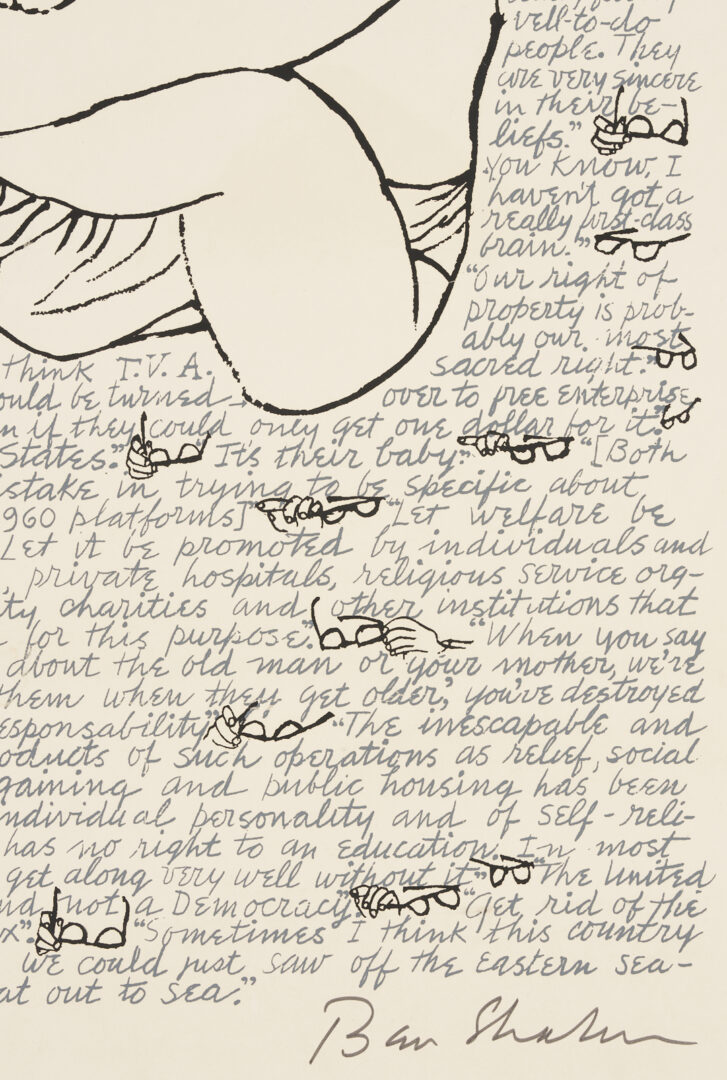 well-to-do
people. They
are very sincere
in their be-
liefs."
You know, I
haven't got a
really first-class
brain."
"Our right of
property is prob-
ably our most
think T.V.A. sacred right."
ould be turned over to free enterprise
n if they could only get one dollar for it."
States." It's their baby." "[Both
stake in trying to be specific about
960 platforms]" "Let welfare be
Let it be promoted by individuals and
, private hospitals, religious service org-
ty charities and other institutions that
for this purpose." "When you say
about the old man or your mother, we're
them when they get older, you've destroyed
esponsability" "The inescapable and
oducts of such operations as relief, social
gaining and public housing has been
ndividual personality and of self-reli-
has no right to an education. In most
get along very well without it." "The United
nd not a Democracy." "Get rid of the
x". "Sometimes I think this country
we could just saw off the eastern sea-
at out to sea."
Ben Shahn